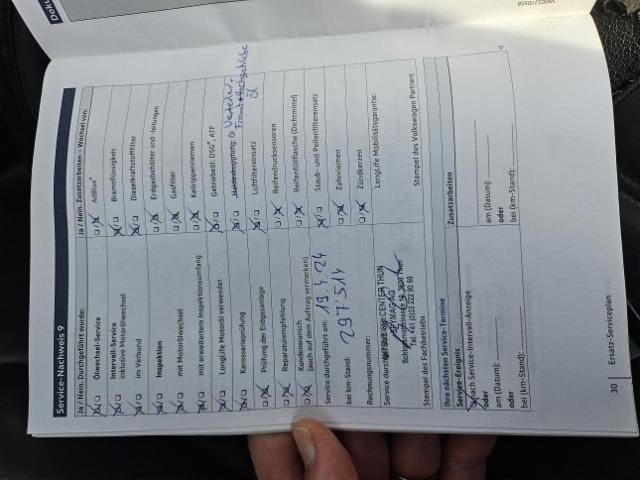 Service-Nachweis 9
Ja / Nein. Durchgeführt wurde:
Ölwechsel-Service
Intervall-Service
inklusive Motorölwechsel
im Verbund
Inspektion
mit Motorölwechsel
mit erweitertem Inspektionsumfang
LongLife Motoröl verwendet
Karosserieprüfung
Prüfung der Erdgasanlage
Reparaturempfehlung
Kundenwunsch
(auch auf dem Auftrag vermerken)
Service durchgeführt am: 19.4.24
bei km-Stand: 297.514
Rechnungsnummer:
Service durch
CENTER THUN
Tel. +41 (0)33 222 90 60
Stempel des Fachbetriebs
Ja / Nein. Zusatzarbeiten – Wechsel von:
AdBlue®
Bremsflüssigkeit
Dieselkraftstofffilter
Erdgasbehälter und -leitungen
Gasfilter
Keilrippenriemen
Getriebeöl: DSG®, ATF
Öl
Luftfiltereinsatz
Öl
Reifendrucksensoren
Reifenfüllflasche (Dichtmittel)
Staub- und Pollenfiltereinsatz
Zahnriemen
Zündkerzen
LongLife Mobilitätsgarantie:
Stempel des Volkswagen Partners
Ihre nächsten Service-Termine
Service-Ereignis
nach Service-Intervall-Anzeige
oder
am (Datum):
oder
bei (km-Stand):
Zusatzarbeiten
am (Datum):
oder
bei (km-Stand):
30
Ersatz-Serviceplan